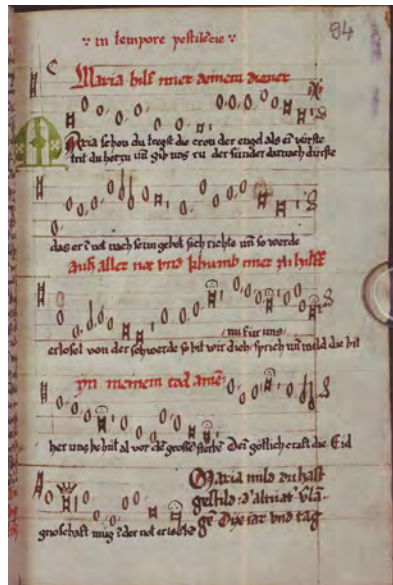 in tempore pestilēcie
94
Maria hilf mier deinem diener
Maria schou du tregst die cron der engel als ei fürste
trit du herzu uñ gib uns ru der sünder darnach dürste
das er ĩ not nach seim gebot sich richte uñ so werde
auß aller not vnd khumb mier zu hilff
nu für uns
erlosel von der schwerde so bit wir dich sprich uñ meld die bit
yn meinem tod amē
her uns behüt al vor dē grossē sterbē Dei götlich craft die Eid
Maria mild du hast
gestild
gē Die iar vnd tag
gnoschaft müg ĩ der not